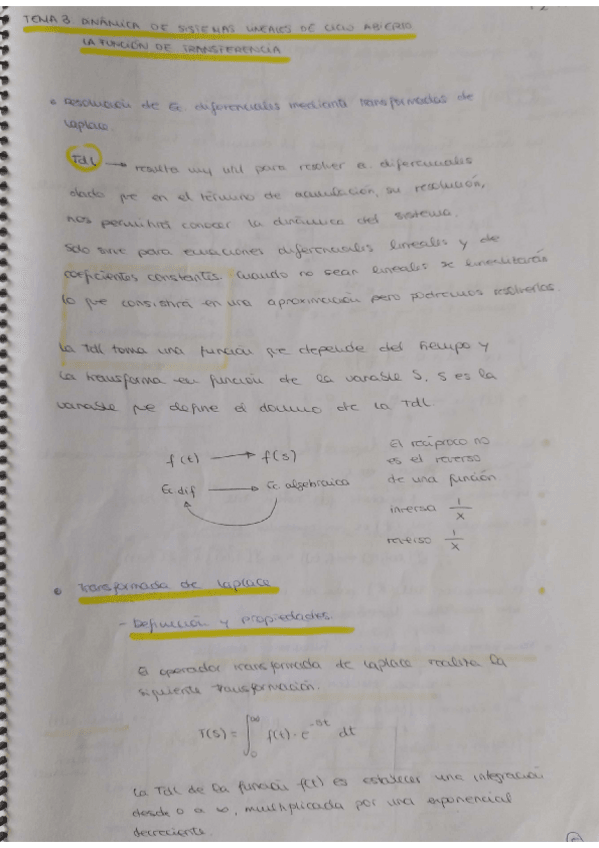 TEMA 3 DINÁMICA DE SISTEMAS LINEALES DE CICLO ABIERTO
LA FUNCIÓN DE TRANSFERENCIA
Resolución de Ec. diferenciales mediante transformadas de
Laplace.
TdL → resulta muy util para resolver e. diferenciales
dado que en el término de acumulación, su resolución,
nos permitirá conocer la dinámica del sistema.
Solo sirve para ecuaciones diferenciales lineales y de
coeficientes constantes. Cuando no sean lineales se linealizarán
lo que consistirá en una aproximación pero podremos resolverlas.
La TdL toma una función que depende del tiempo y
la transforma en función de la variable S, S es la
variable que define el dominio de la TdL
f(t) → f(s)
Ec. dif → Ec. algebraica
El recíproco no
es el reverso
de una función
inversa 1/x
reverso 1/x
Transformada de Laplace
- Definición y propiedades.
El operador transformada de Laplace realiza la
siguiente transformación.
T(s) = ∫₀^∞ f(t) · e^-st dt
La TdL de la función f(t) es establecer una integración
desde 0 a ∞, multiplicada por una exponencial
decreciente.